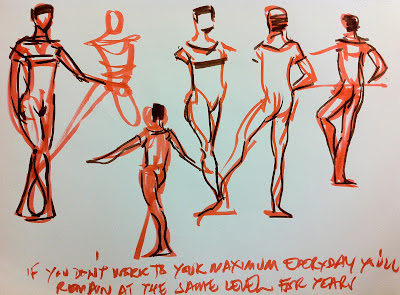 IF YOU DON'T WORK TO YOUR MAXIMUM EVERYDAY YOU'LL
REMAIN AT THE SAME LEVEL FOR YEARS